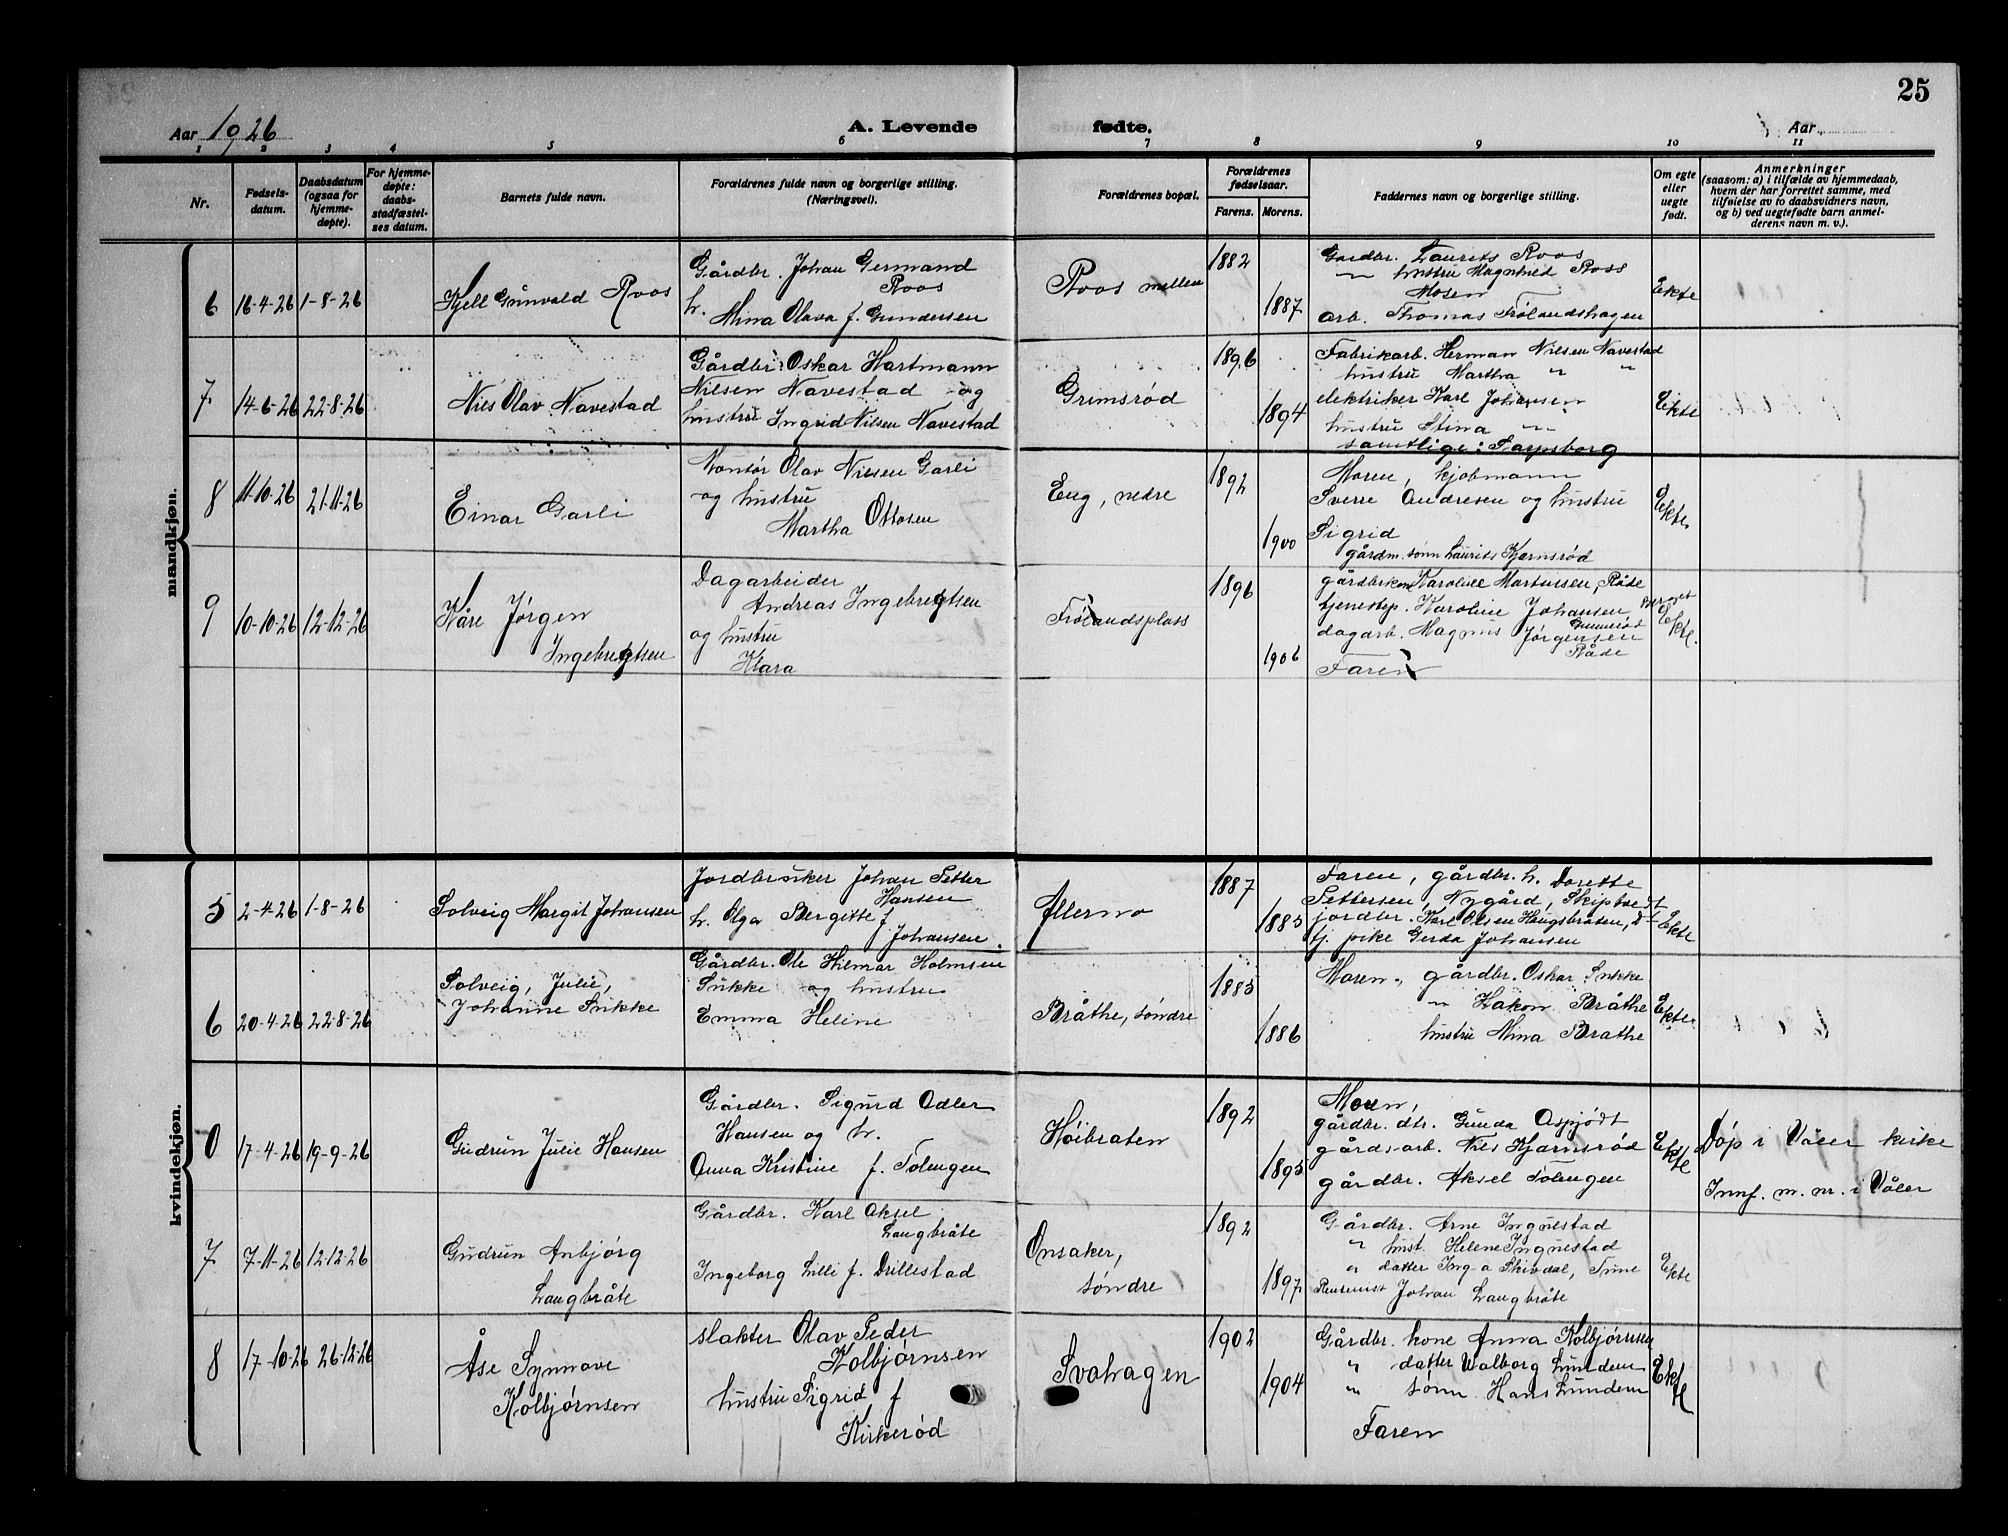 25
Aar 1926
A. Levende fødte.
Aar
1 2 3 4 5 6 7 8 9 10 11
Nr.
Fødsels-
datum.
Daabsdatum
(ogsaa for
hjemme-
døpte).
For hjemme-
døpte:
daabs-
stadfæstel-
ses datum.
Barnets fulde navn.
Forældrenes fulde navn og borgerlige stilling.
(Næringsvei).
Forældrenes bopæl.
Forældrenes
fødselsaar.
Farens. Morens.
Faddernes navn og borgerlige stilling.
Om egte
eller
uegte
født.
Anmerkninger
(saasom: a) i tilfælde av hjemmedaab,
hvem der har forrettet samme, med
tilføielse av to daabsvidners navn,
og b) ved uegtefødte barn anmel-
derens navn m. v.).
mandkjøn.
6 16-4-26 1-8-26
Kjell Gunvald Roos
Gårdbr. Johan Germand
Roos
h. Mina Olava f. Gundersen
Roos mellem
1882
1887
Gardbr. Laurits Roos
" hustru Magnhild Ross
Mosen
arb. Thomas Frølandshagen
Ekte
7 14-6-26 22-8-26
Nils Olav Navestad
Gårdbr. Oskar Hartmann
Nilsen Navestad og
hustru Ingrid Nilsen Navestad
Grimsrød
1896
1894
Fabrikarb. Herman Nilsen Navestad
hustru Martha " "
elektriker Karl Johansen
hustru Stina "
samtlige: Sarpsborg
Ekte
8 11-10-26 21-11-26
Einar Garli
Montør Olav Nilsen Garli
og hustru
Martha Ottosen
Eng, nedre
1892
1900
Moren, kjøbmann
Sverre Andresen og hustru
Sigrid
gårdm. sønn Laurits Kjernsrød
Ekte
9 10-10-26 12-12-26
Kåre Jørgen
Ingebregtsen
Dagarbeider
Andreas Ingebregtsen
og hustru
Klara
Frølandsplass
1896
1906
gårdbrkone Karoline Martinsen, Råde
tjenestep. Karoline Johansen
dagarb. Magnus Jørgensen
Råde
Faren
Ekte.
kvindekjøn.
5 2-4-26 1-8-26
Solveig Margit Johansen
Jordbruker Johan Petter
Hansen
h. Olga Bergitte f.
Johansen.
Ællermo
1887
1885
Faren, gårdbr. h. Dorette
Pettersen, Nygård, Skiptvedt
jordbr. Karl Olsen Haugsbråten,
tj. pike Gerda Johansen
Ekte
6 20-4-26 22-8-26
Solveig, Julie,
Johanne Sukke
Gårdbr. Ole Hilmar Holmsen
Sukke og hustru
Emma Helene
Bråthe, søndre
1885
1886
Moren, gårdbr. Oskar Sukke
" Hakon Bråthe
hustru Mina Brathe
Ekte
0 17-4-26 19-9-26
Gudrun Julie Hansen
Gårdbr. Sigurd Adler
Hansen og h.
Anna Kristine f. Solengen
Høibraten
1892
1895
Moren,
gårdbr. dtr. Gunda Aspjødt
gårds-arb. Nils Kjærnsrød
gårdbr. Aksel Solengen
Ekte
Døp i Våler kirke
Innf. m. nr. i Våler
7 7-11-26 12-12-26
Gudrun Anbjørg
Langbråte
Gårdbr. Karl Aksel
Langbråte
Ingeborg Lilli f. Drillestad
Onsaker,
søndre
1892
1897
Gårdbr. Arne Ingnestad
" hust. Helene Ingnestad
" datter Inga Skivdal, Tune
Rentenist Johan Langbråte
Ekte
8 17-10-26 26-12-26
Åse Synnøve
Kolbjørnsen
slakter Olav Peder
Kolbjørnsen
hustru Sigrid f
Kirkerød
Svahagen
1902
1904
Gårdbr. kone Anna Kolbjørnsen
" datter Walborg Lundem
" sønn Hans Lundem
Faren
Ekte